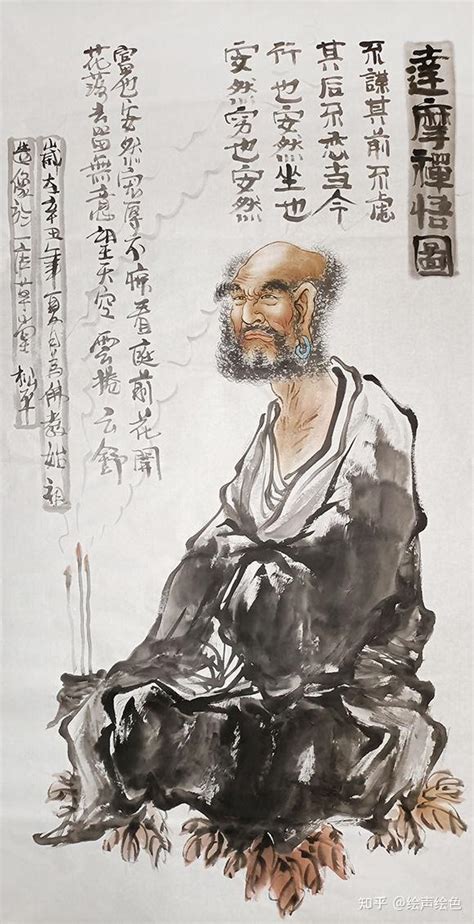 達摩禪悟圖
不謀其前不慮
其后不恋当今
行也安然坐也
安然穷也安然
富也安然宠辱不看庭前花開
花落去留無意望天空雲捲云舒
歲在辛丑年夏日為佛教始祖
造像於草堂
知乎 @绘声绘色